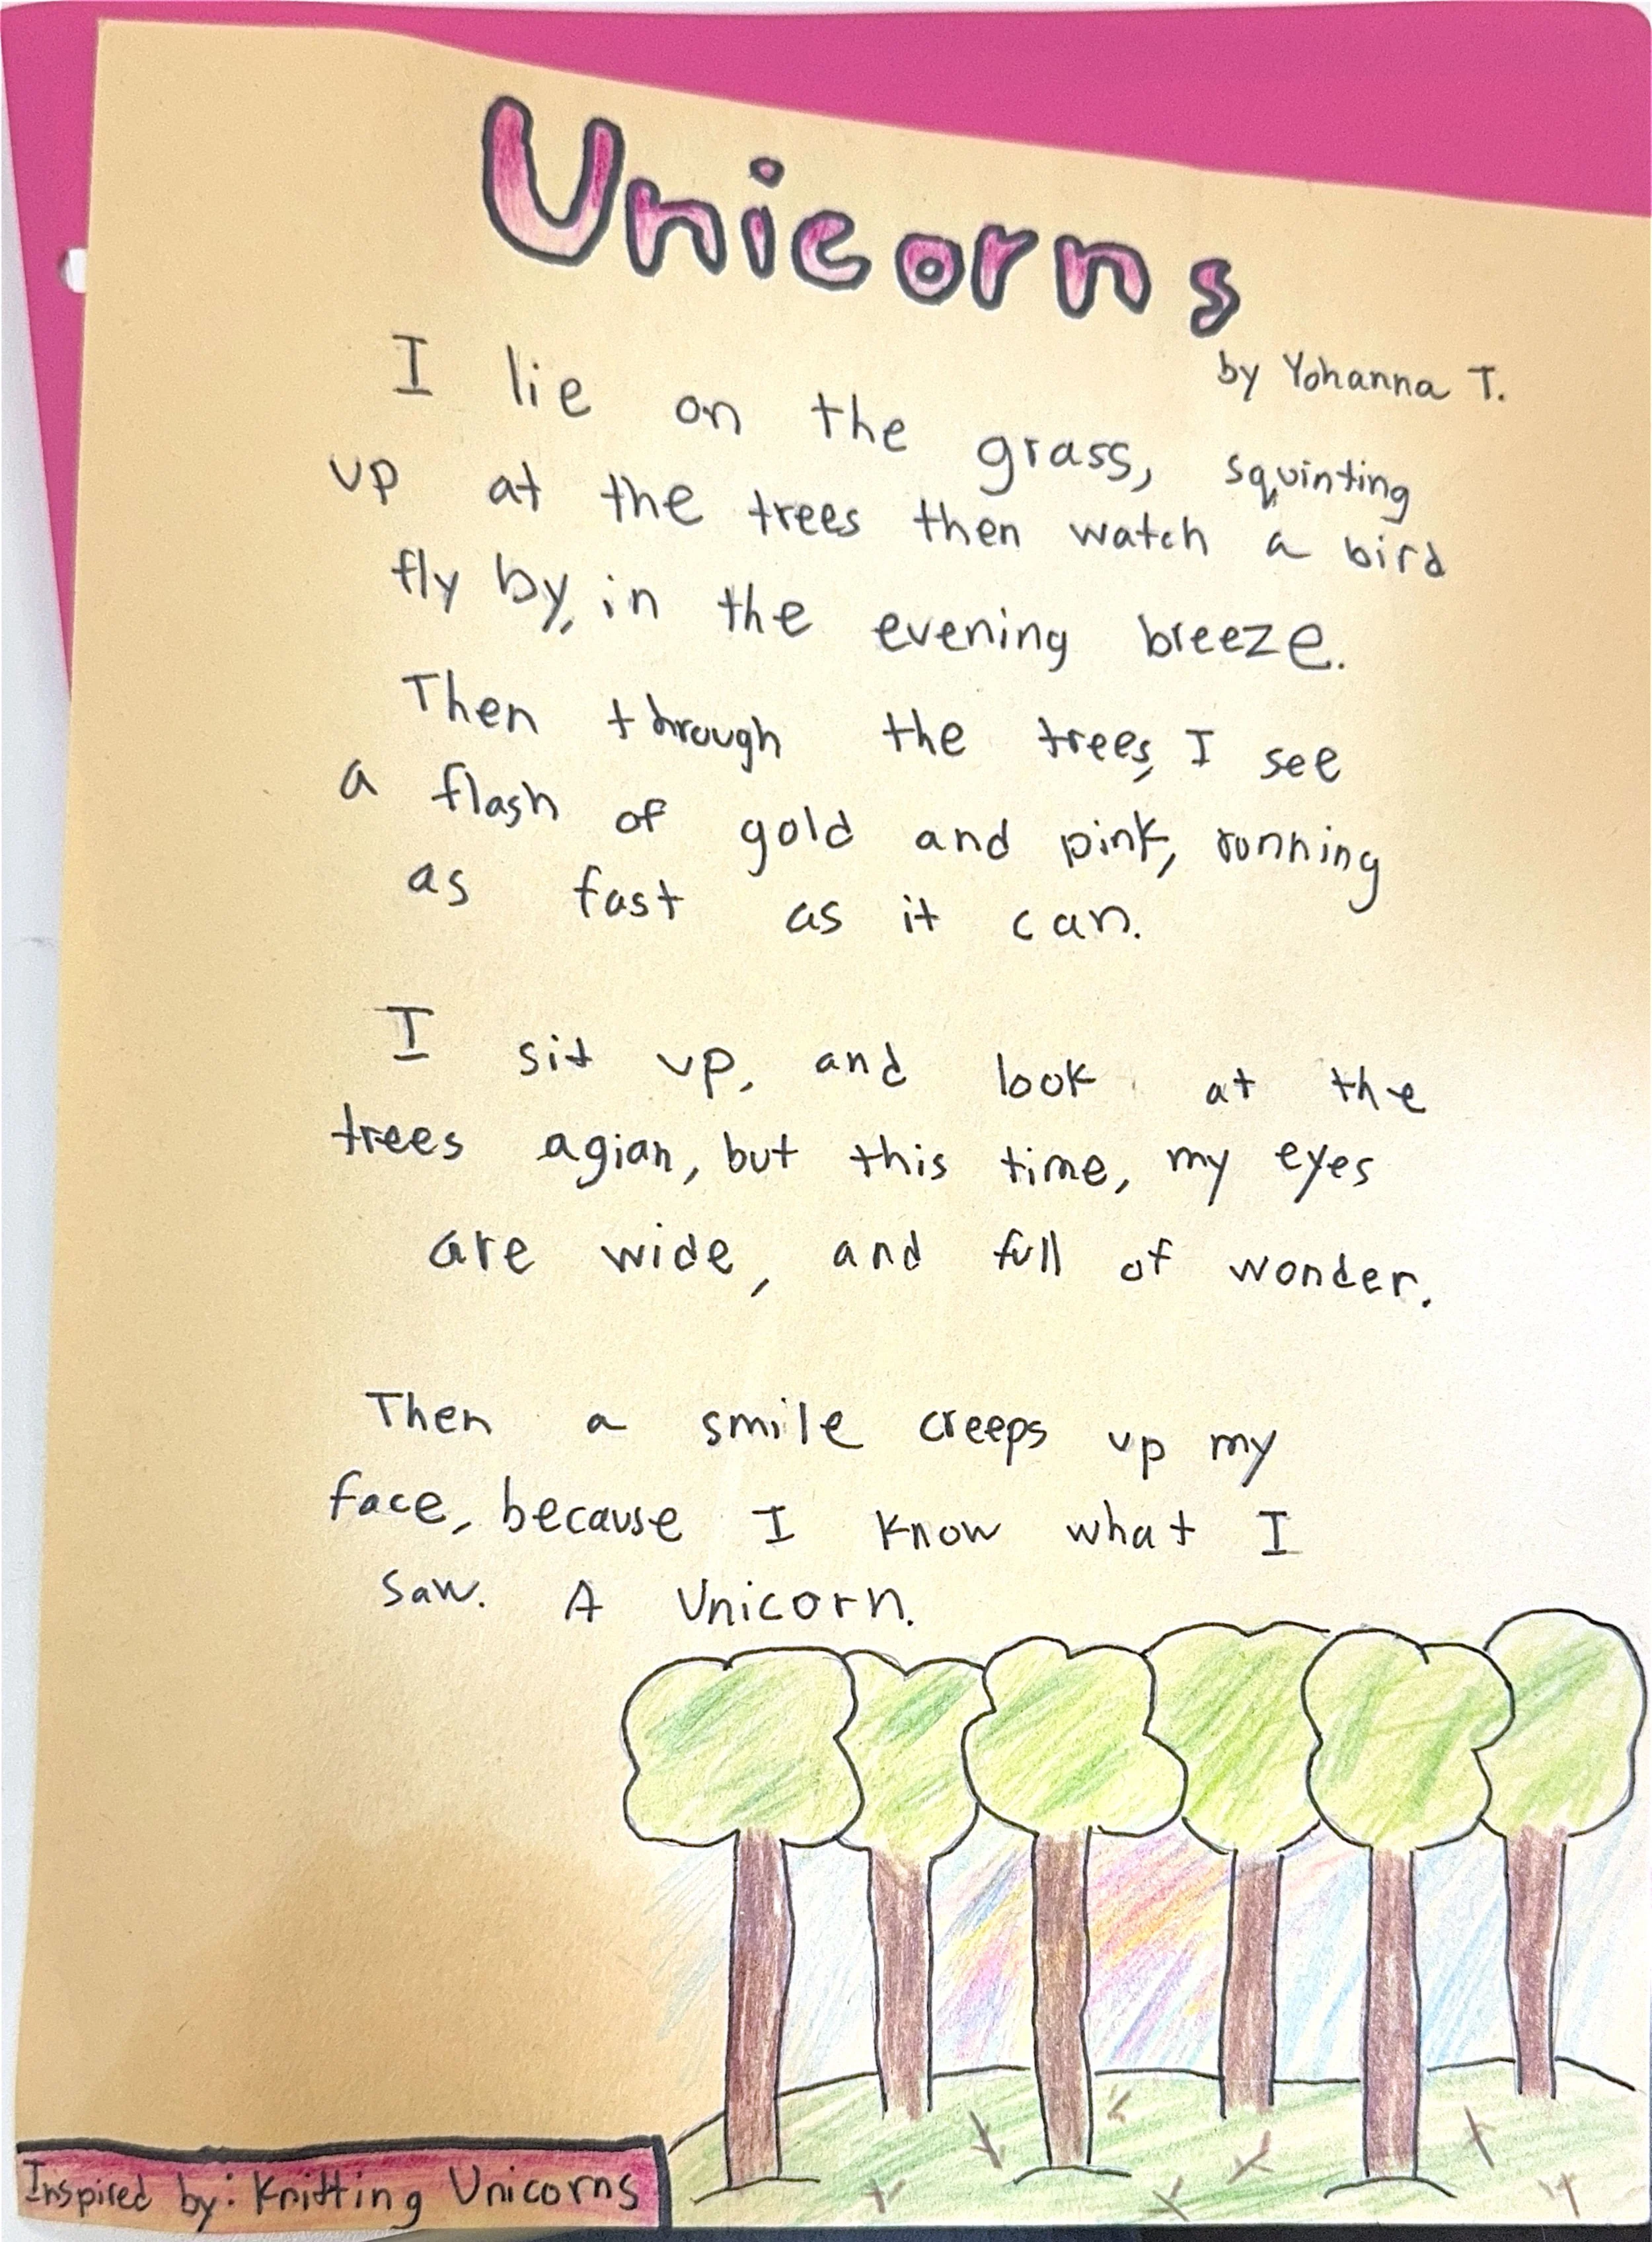 Unicorns
by Yohanna T.
I lie on the grass, squinting
up at the trees then watch a bird
fly by, in the evening breeze.
Then through the trees, I see
a flash of gold and pink, running
as fast as it can.
I sit up, and look at the
trees agian, but this time, my eyes
are wide, and full of wonder.
Then a smile creeps up my
face, because I know what I
saw. A Unicorn.
Inspired by: Knitting Unicorns